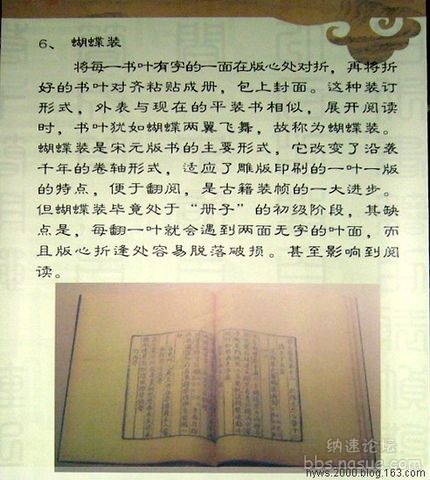 6、 蝴蝶装
将每一书叶有字的一面在版心处对折，再将折
好的书叶对齐粘贴成册，包上封面。这种装订
形式，外表与现在的平装书相似，展开阅读
时，书叶犹如蝴蝶两翼飞舞，故称为蝴蝶装。
蝴蝶装是宋元版书的主要形式，它改变了沿袭
千年的卷轴形式，适应了雕版印刷的一叶一版
的特点，便于翻阅，是古籍装帧的一大进步。
但蝴蝶装毕竟处于“册子”的初级阶段，其缺
点是，每翻一叶就会遇到两面无字的叶面，而
且版心折逢处容易脱落破损。甚至影响到阅
读。
纳速论坛
bbs.nasue.com
hyws.2000.blog.163.com